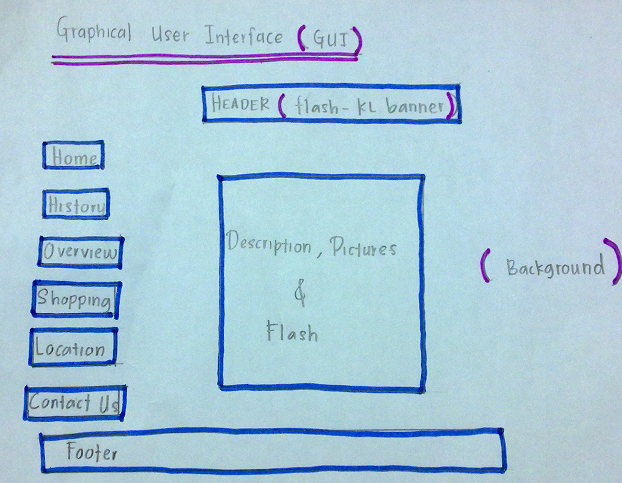 Graphical User Interface (GUI)
HEADER (flash-KL banner)
Home
History
Overview
Shopping
Location
Contact Us
Description, Pictures
&
Flash
(Background)
Footer